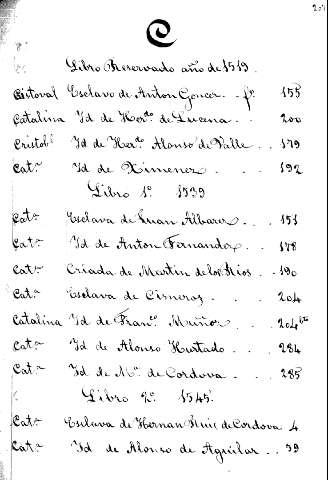 C
Libro Reservado año de 1519.
Cistoval Esclavo de Anton Goncer . . fº 155
Catalina Id de Herºº de Lucena . . . 200
Cristobl Id de Herºº Alonso de Valle . . 179
Catª Id de Ximenez . . . 192
Libro 1º 1539
Catª Esclava de Juan Albarez . . . 151
Catª Id de Anton Fernandez . . . 178
Catª Criada de Martin de los Rios . . 190
Catª Esclava de Cisneros . . . . 204
Catalina Id de Franº Muñoz . . . 204
Catª Id de Alonso Hurtado . . . 284
Catª Id de Mª de Cordova . . . 285
Libro 2º 1545.
Catª Esclava de Hernan Ruiz de Cordova 4
Catª Id de Alonso de Aguilar . . 39